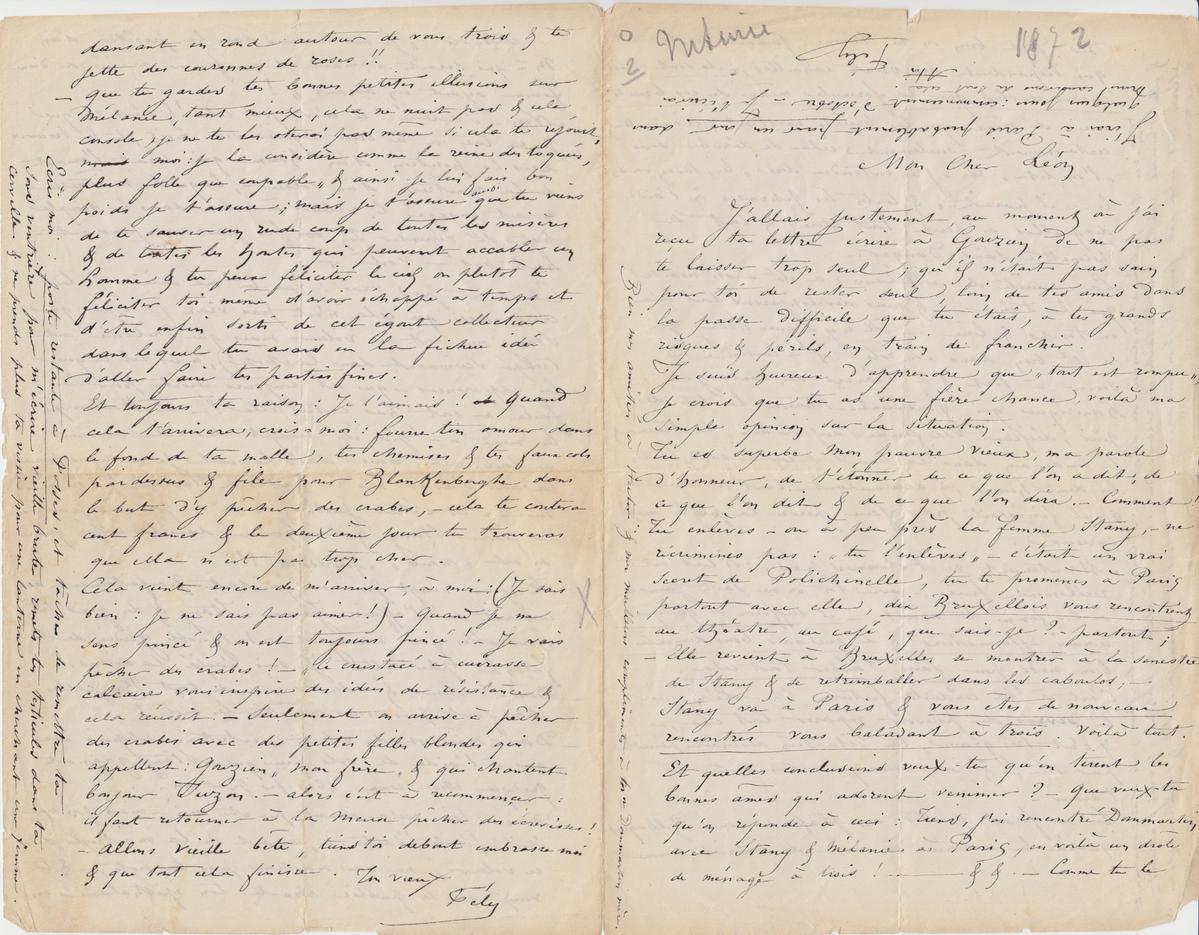 1872
Mon Cher Léon
J'allais justement au moment où j'ai
reçu ta lettre écrire à Gouzien de ne pas
te laisser trop seul ; qu'il n'était pas sain
pour toi de rester seul, loin de tes amis dans
la passe difficile que tu étais, à tes grands
risques & périls, en train de franchir.
Je suis heureux d'apprendre que „ tout est rompu „
je crois que tu as une fière chance, voilà ma
simple opinion sur la situation.
Tu es superbe mon pauvre vieux, ma parole
d'honneur, de t'étonner de ce que l'on a dit, de
ce que l'on dit & de ce que l'on dira. – Comment !
Tu enlèves – ou à peu près la femme Stany, – ne
récrimines pas : „ tu l'enlèves „ – c'était un vrai
secret de Polichinelle, tu te promènes à Paris
partout avec elle, dix Bruxellois vous rencontrent
au théâtre, au café, que sais-je ? – partout ;
– Elle revient à Bruxelles se montrer à la
de Stany & se retrimballer dans les caboulos ; –
Stany va à Paris & vous êtes de nouveau
rencontrés vous baladant à trois. Voilà tout.
Et quelles conclusions veux-tu qu'en tirent les
bonnes âmes qui adorent venimer ? – que veux-tu
qu'on réponde à ceci : Tiens, j'ai rencontré Dommartin,
avec Stany & Mélanie à Paris, en voilà un drôle
de ménage à trois ! – & &. – Comme tu le
Bien mes amitiés à Victor & mes meilleurs compliments à Mme Dommartin mère.
J'irai à Paris probablement faire un tour dans
quelques jours : commencement d'octobre – Je t'écrirai
Fély
dansant en rond autour de vous trois & te
jette des couronnes de roses !!
– que tu gardes tes bonnes petites illusions sur
Mélanie, tant mieux, cela ne nuit pas & cela
console ; je ne te les oterai pas même si cela te réjouit,
mais moi : je la considère comme la reine des toqués,
plus folle que coupable „ & ainsi je lui fais bon
poids je t'assure ; mais je t'assure aussi que tu viens
de te sauver un rude coup de toutes les misères
& de toutes les hontes qui peuvent accabler un
homme & tu peux féliciter le ciel ou plutôt te
féliciter toi même d'avoir échappé à temps et
d'être enfin sorti de cet égout collecteur
dans lequel tu avais eu la fichue idée
d'aller faire tes parties fines.
Et toujours ta raison : Je l'aimais ! Quand
cela t'arrivera, crois-moi : fourre ton amour dans
le fond de ta malle, tes chemises & tes faux cols
par dessus & file pour Blankenberghe dans
le but d'y pêcher des crabes, – cela te coutera
cent francs & le deuxième jour tu trouveras
que cela n'est pas trop cher.
Cela vient encore de m'arriver, à moi : (Je sais
bien : je ne sais pas aimer !) – Quand je me
sens pincé & on est toujours pincé ! – Je vais
pêcher des crabes ! – „ ce crustacé à cuirasse
calcaire vous inspire des idées de résistance &
cela réussit. – Seulement on arrive à pêcher
des crabes avec des petites filles blondes qui
appellent : Gouzien „ mon frère „ & qui chantent
bonjour Suzon. – alors c'est à recommencer :
il faut retourner à la Meuse pêcher des écrevisses !
– Allons vieille bête, tiens toi debout embrasse moi
& que tout cela finisse. Ton vieux
Fély
Ecris moi : poste restante à et tâche de remettre ta
sous ventrière pour m'écrire vieille brute, remets tes testicules dans ta
cervelle & ne prends plus ta vessie pour une lanterne en cherchant une femme.